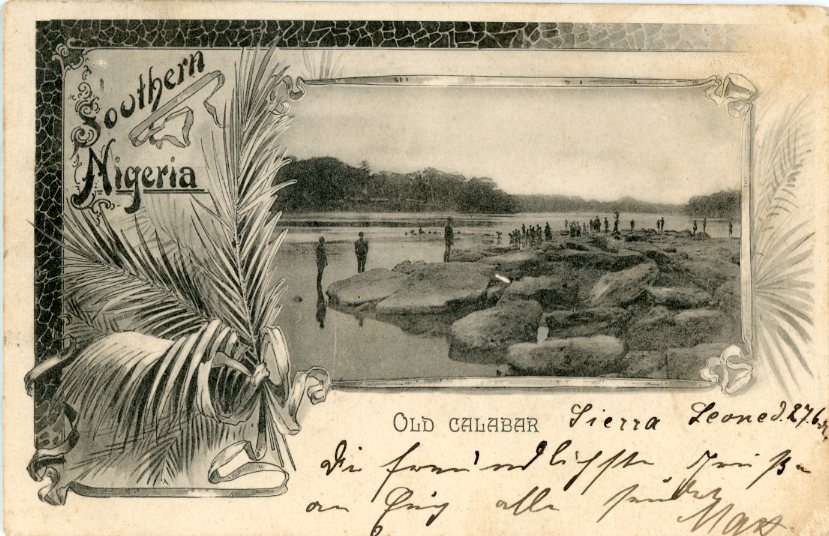 Southern
Nigeria
OLD CALABAR
Sierra Leone d. 27.6.
Die freundlichsten Grüße
an Euch alle sendet
Max.